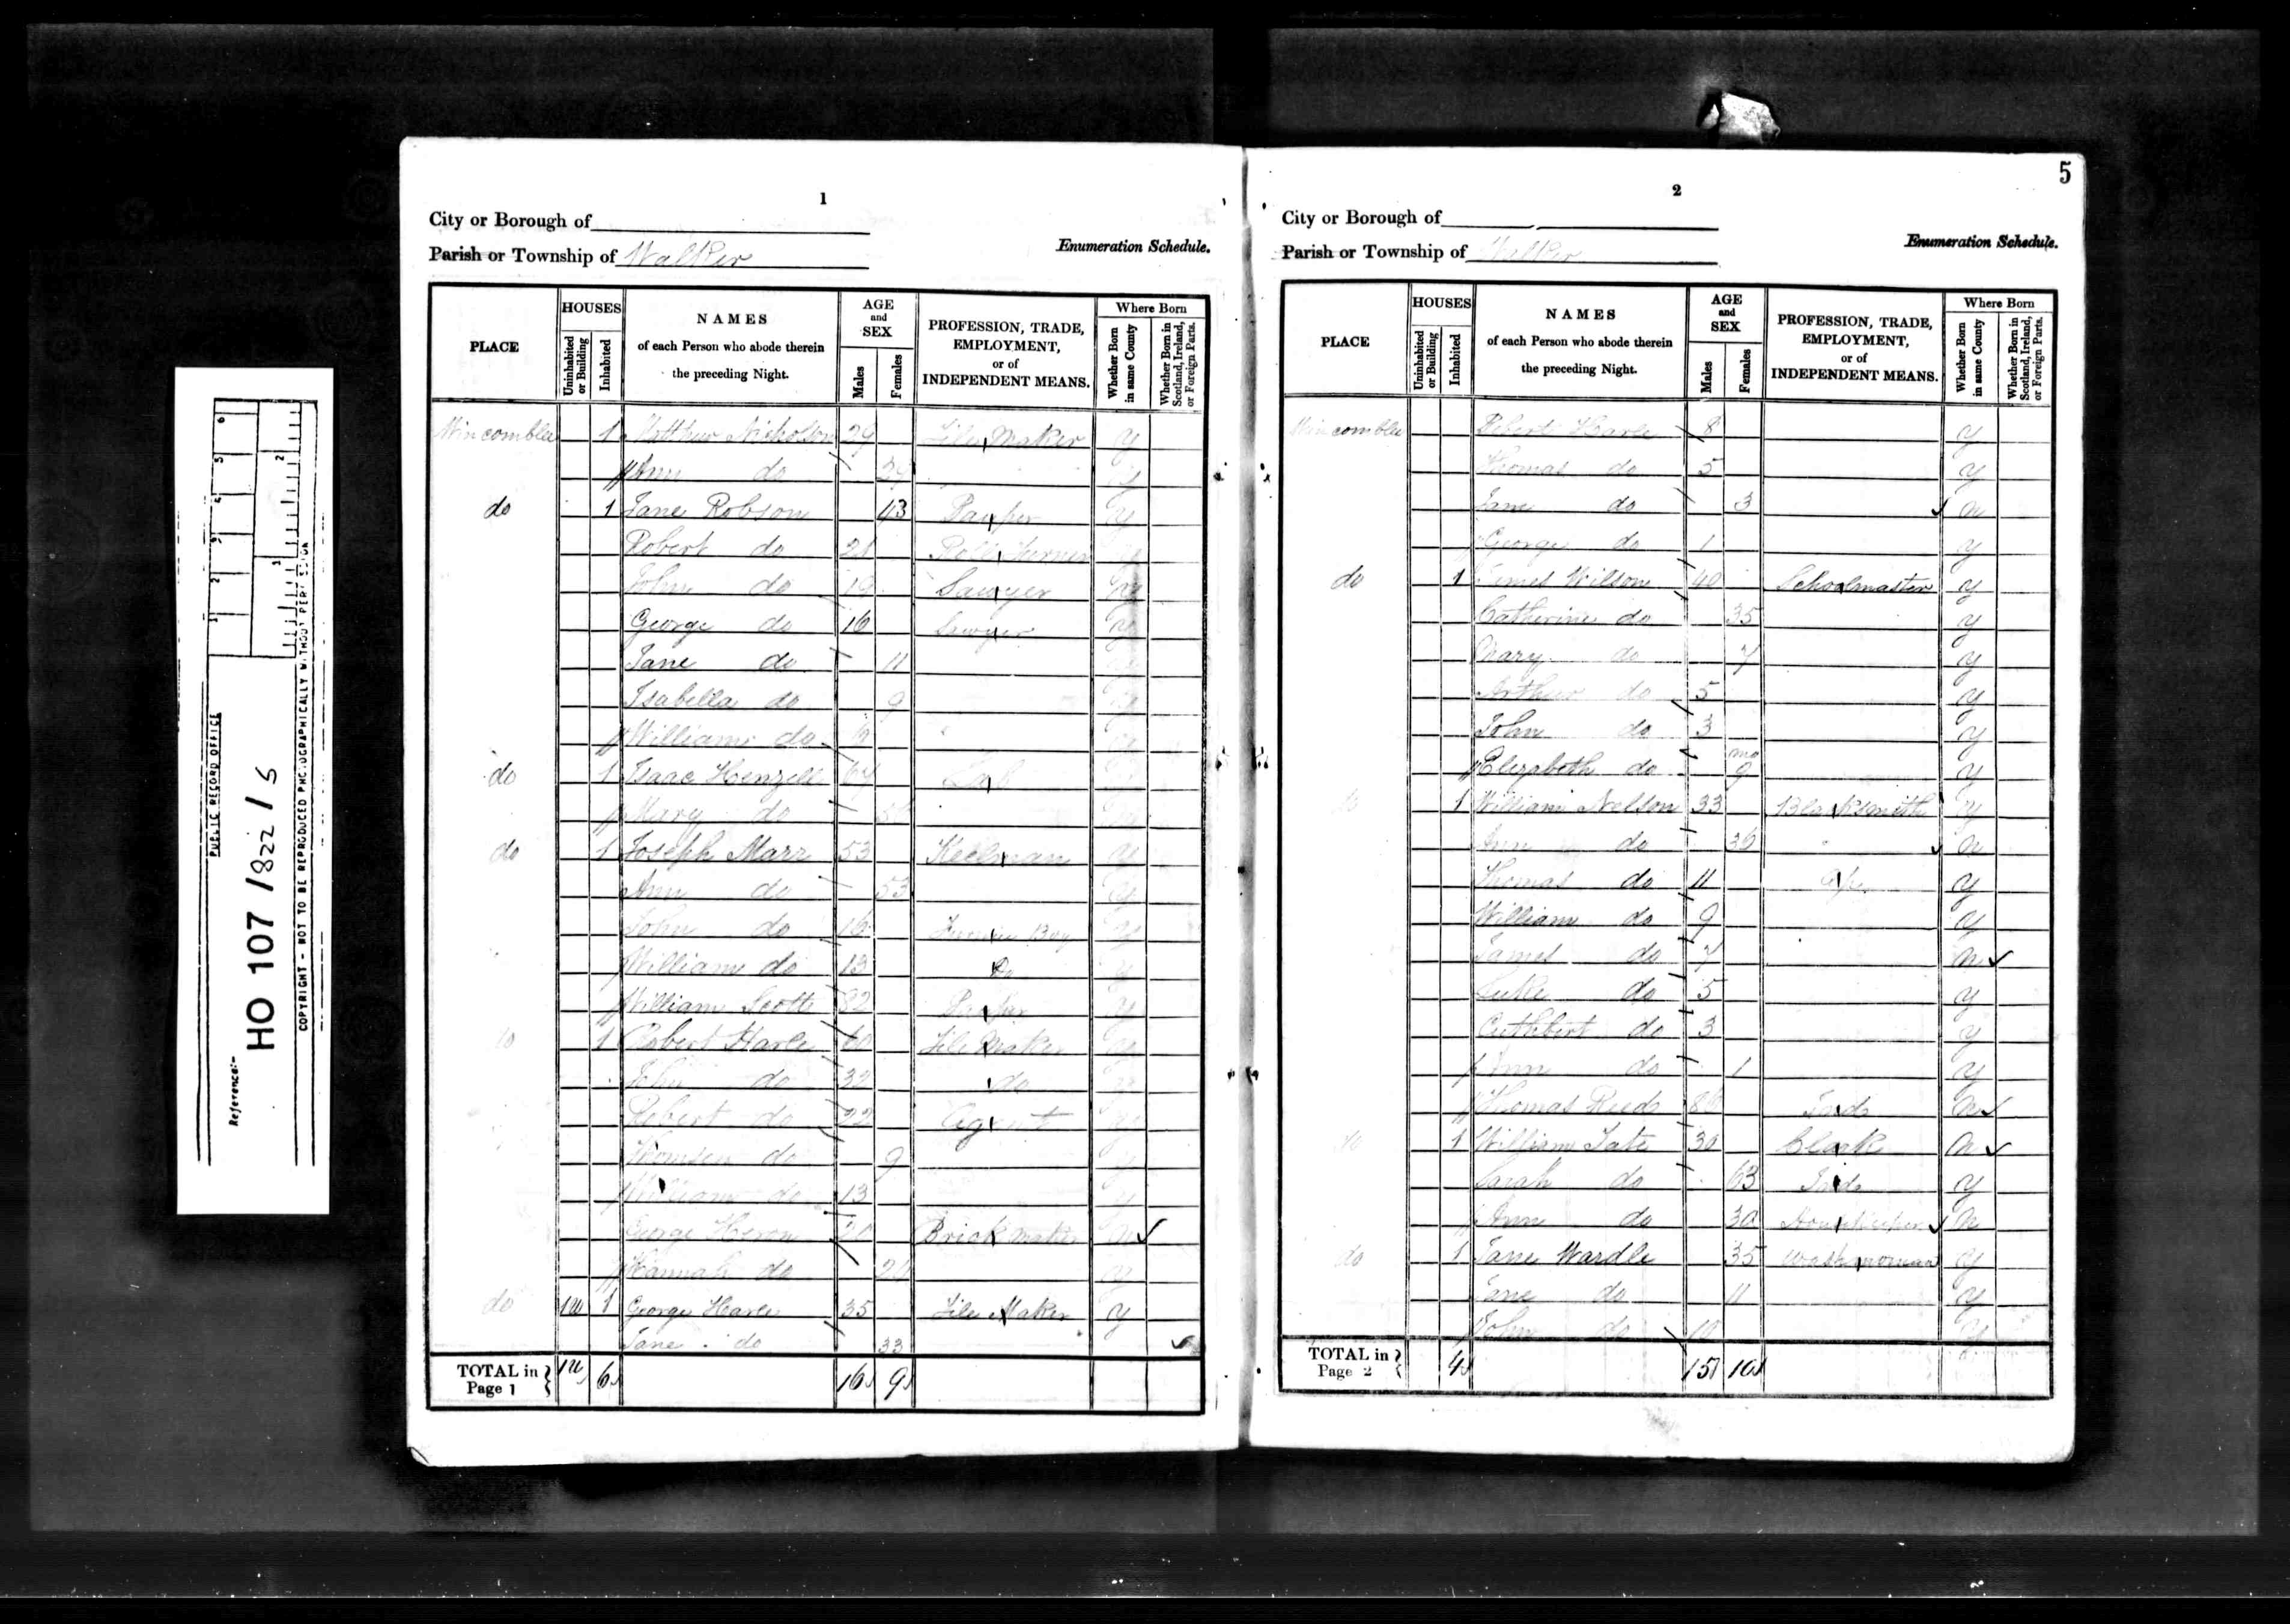 1
City or Borough of
Parish or Township of Walker
Enumeration Schedule.
PLACE
HOUSES
Uninhabited or Building
Inhabited
NAMES
of each Person who abode therein
the preceding Night.
AGE
and
SEX
Males
Females
PROFESSION, TRADE,
EMPLOYMENT,
or of
INDEPENDENT MEANS.
Where Born
Whether Born in same County
Whether Born in Scotland, Ireland, or Foreign Parts.
Wincomblee 1 Matthew Nicholson 29 Tile Maker y
Ann do y
do 1 Jane Robson 43 Pauper y
Robert do 21 Turner y
John do 19 Sawyer y
George do 16 Sawyer y
Jane do 11 y
Isabella do 9 y
William do y
do 1 Isaac Henzell Lab y
Mary do y
do 1 Joseph Marr 53 Keelman y
Ann do 53 y
John do 16 Boy y
William do 13 Do y
William Scott 82 Pauper y
do 1 Robert Harle 60 Tile Maker y
John do 32 do y
Robert do 22 Agent y
Thomsen do 9 y
William do 13 y
George Heron 20 Brick maker n
Hannah do 20 y
do 1u 1 George Harle 35 Tile Maker y
Jane do 33
TOTAL in Page 1 1u 6 16 9
2
5
City or Borough of
Parish or Township of Walker
Enumeration Schedule.
PLACE
HOUSES
Uninhabited or Building
Inhabited
NAMES
of each Person who abode therein
the preceding Night.
AGE
and
SEX
Males
Females
PROFESSION, TRADE,
EMPLOYMENT,
or of
INDEPENDENT MEANS.
Where Born
Whether Born in same County
Whether Born in Scotland, Ireland, or Foreign Parts.
Wincomblee Robert Harle 8 y
Thomas do 5 y
Jane do 3 n
George do 1 y
do 1 James Wilson 40 Schoolmaster y
Catherine do 35 y
Mary do 7 y
Arthur do 5 y
John do 3 y
Elizabeth do mo 9 y
do 1 William Nelson 33 Blacksmith y
Ann do 36 n
Thomas do 11 y
William do 9 y
James do 7 n
Luke do 5 y
Cuthbert do 3 y
Ann do 1 y
Thomas Reed Ind n
do 1 William Tate 30 Clerk n
Sarah do 63 Ind y
Ann do 30 Housekeeper n
do 1 Jane Wardle 35 Washwoman y
Jane do 11 y
John do 10 y
TOTAL in Page 2 4 15 10
PUBLIC RECORD OFFICE
Reference:-
HO 107 / 822 / 5
COPYRIGHT - NOT TO BE REPRODUCED PHOTOGRAPHICALLY WITHOUT PERMISSION